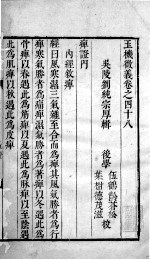 玉機微義卷之四十八
吳陵劉純宗厚輯
後學
校
痺證門
內經敘痺
經曰風寒濕三氣雜至合而為痺其風氣勝者為行
痺寒氣勝者為痛痺濕氣勝者為著痺以冬遇此為
骨痺以春遇此為筋痺以夏遇此為脉痺以至陰遇
此為肌痺以秋遇此為皮痺